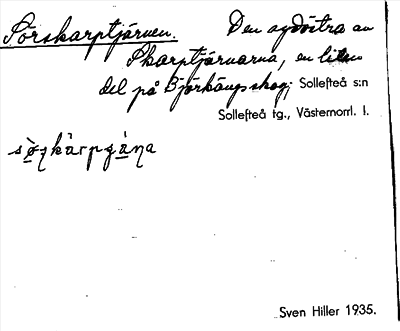 Sörskarptjärnen. Den sydöstra av
Skarptjärnarna, en liten
del på Björkåups skog; Sollefteå s:n
Sollefteå tg., Västernorrl. l.
Sven Hiller 1935.